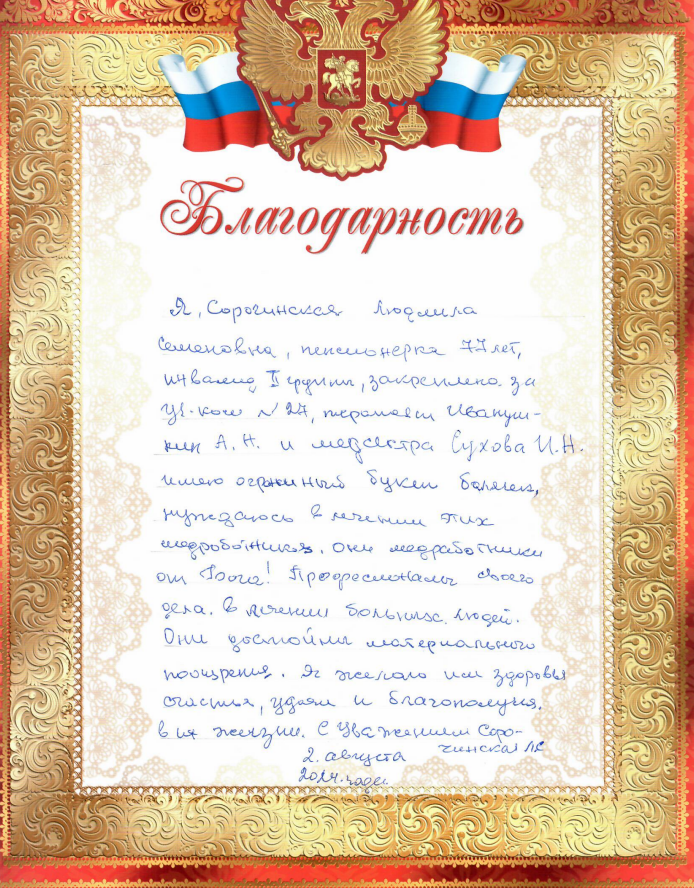 Благодарность
Я, Сорочинская Людмила
Семеновна, пенсионерка 77 лет,
инвалид II группы, закреплена за
уч-ком №27, терапевт Ивануш-
кин А.Н. и медсестра Сухова И.Н.
имею огромный букет болячек,
нуждаюсь в лечении этих
медработников. Они медработники
от Бога! Профессионалы своего
дела. в лечении больных людей.
Они достойны материального
поощрения. Я желаю им здоровья
счастья, удачи и благополучия.
в их жизни. С уважением Соро-
чинская
2. августа
2024. года